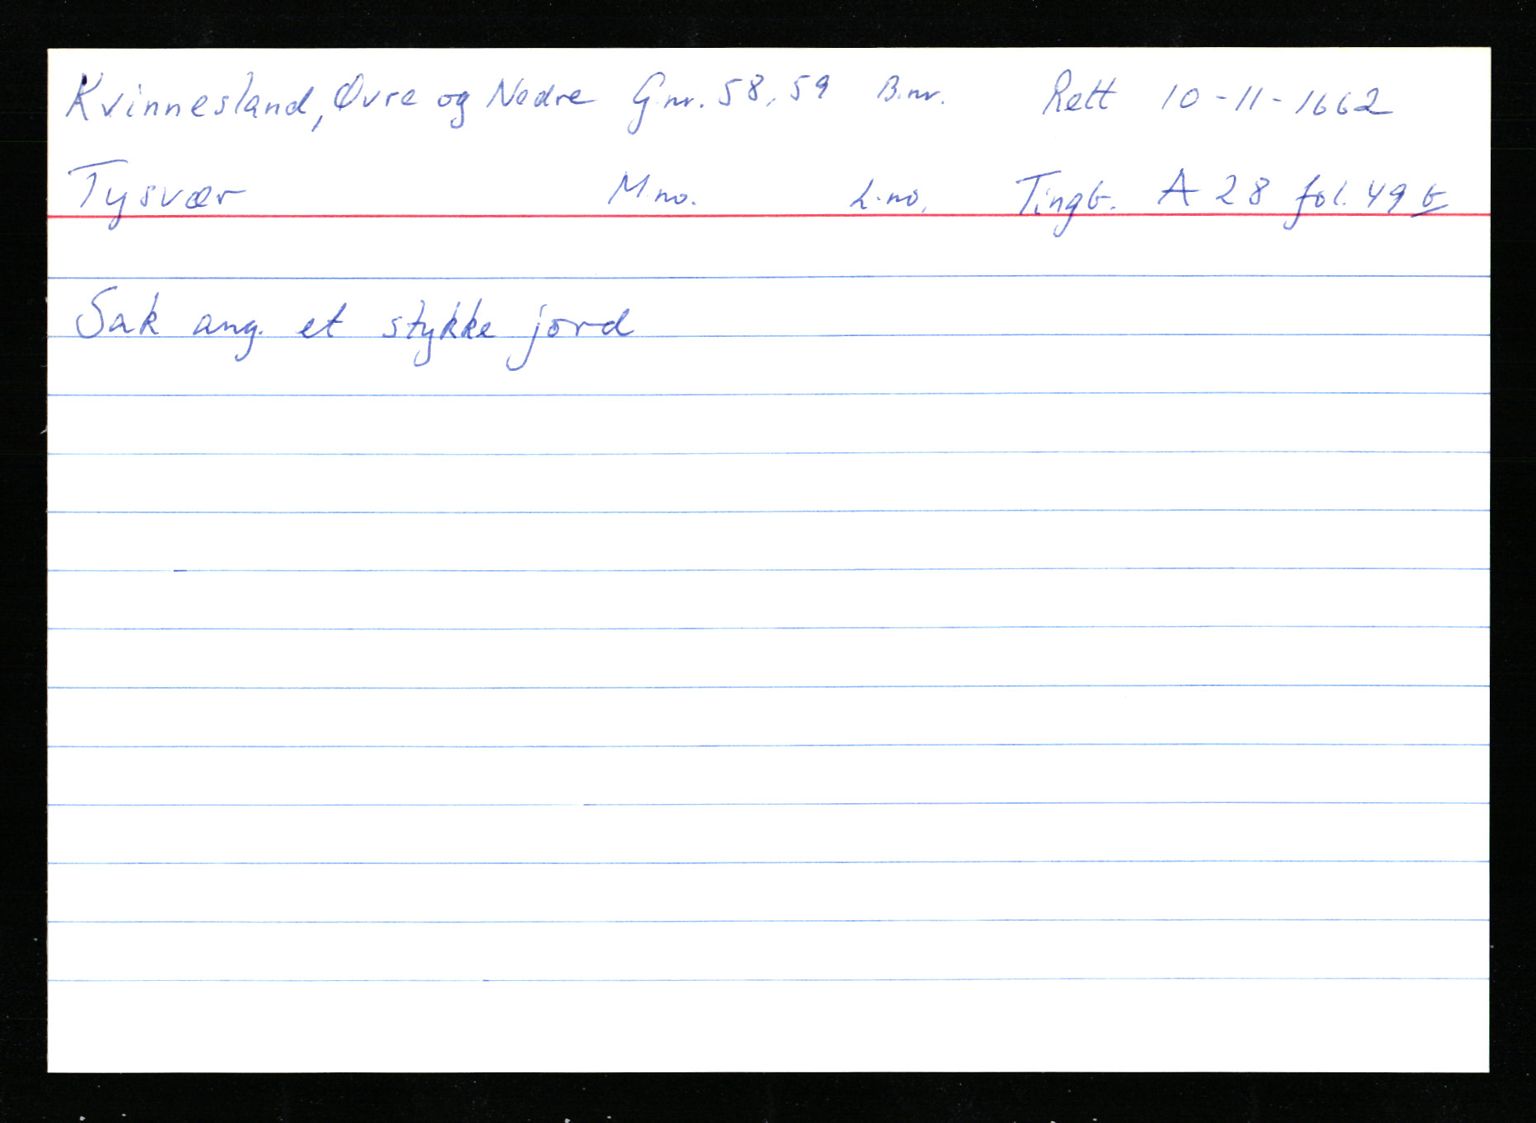 Kvinnesland, Øvre og Nedre Gnr. 58, 59 B.nr. Rett 10-11-1662
Tysvær Mno. L.no. Tingb. A 28 fol. 49 b
Sak ang. et stykke jord